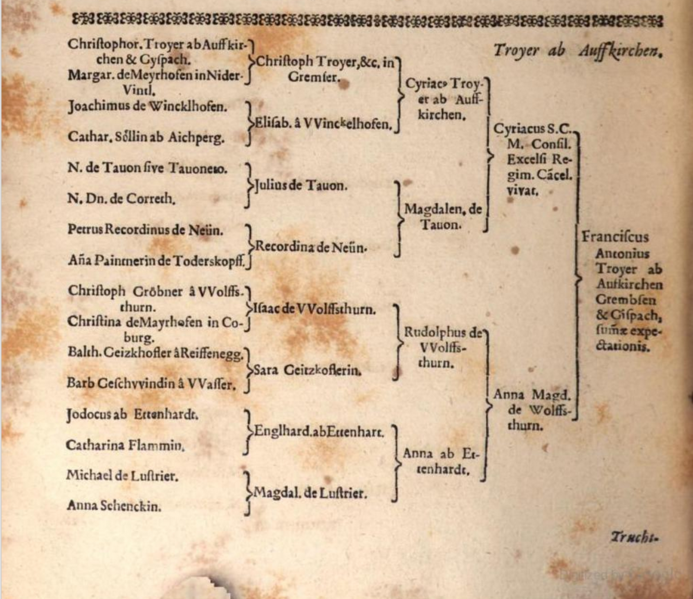 Troyer ab Auffkirchen.
Christophor. Troyer ab Auffkir-
chen & Gyſpach.
Margar. de Meyrhofen in Nider-
Vintl.
Joachimus de Wincklhofen.
Cathar. Söllin ab Aichperg.
N. de Tauon ſive Tauonero.
N. Dn. de Correth.
Petrus Recordinus de Neün.
Aña Paintnerin de Toderskopff.
Chriſtoph Gröbner â VVolffs-
thurn.
Chriſtina de Mayrhofen in Co-
burg.
Balth. Geizkhofler â Reiffenegg.
Barb Geſchvvindin â VVaſſer.
Jodocus ab Ettenhardt.
Catharina Flammin.
Michael de Luſtrier.
Anna Schenckin.
Chriſtoph Troyer, &c. in
Gremſer.
Eliſab. â VVinckelhofen.
Julius de Tauon.
Recordina de Neün.
Iſaac de VVolffsthurn.
Sara Geitzkoflerin.
Englhard. ab Ettenhart.
Magdal. de Luſtrier.
Cyriac⁹ Troy-
er ab Auff-
kirchen.
Magdalen. de
Tauon.
Rudolphus de
VVolffs-
thurn.
Anna ab Et-
tenhardt.
Cyriacus S. C.
M. Conſil.
Excelſi Re-
gim. Cãcel.
vivat.
Anna Magd.
de Wolffs-
thurn.
Franciſcus
Antonius
Troyer ab
Aufkirchen
Grembſen
& Giſpach,
ſum̃æ expe-
ctationis.
Trucht-